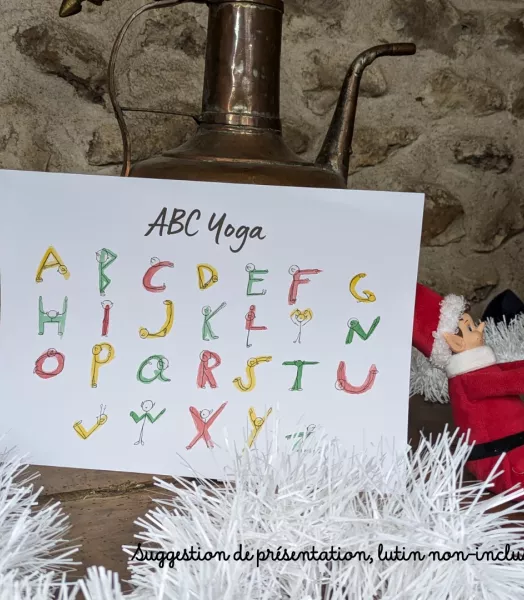 ABC Yoga
A B C D E F G
H I J K L M N
O P Q R S T U
V W X Y Z
Suggestion de présentation, lutin non-inclu